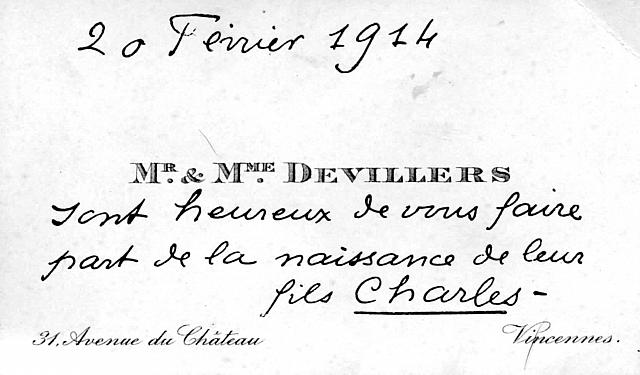 20 Février 1914
MR. & MME. DEVILLERS
sont heureux de vous faire
part de la naissance de leur
fils Charles -
31, Avenue du Château Vincennes.